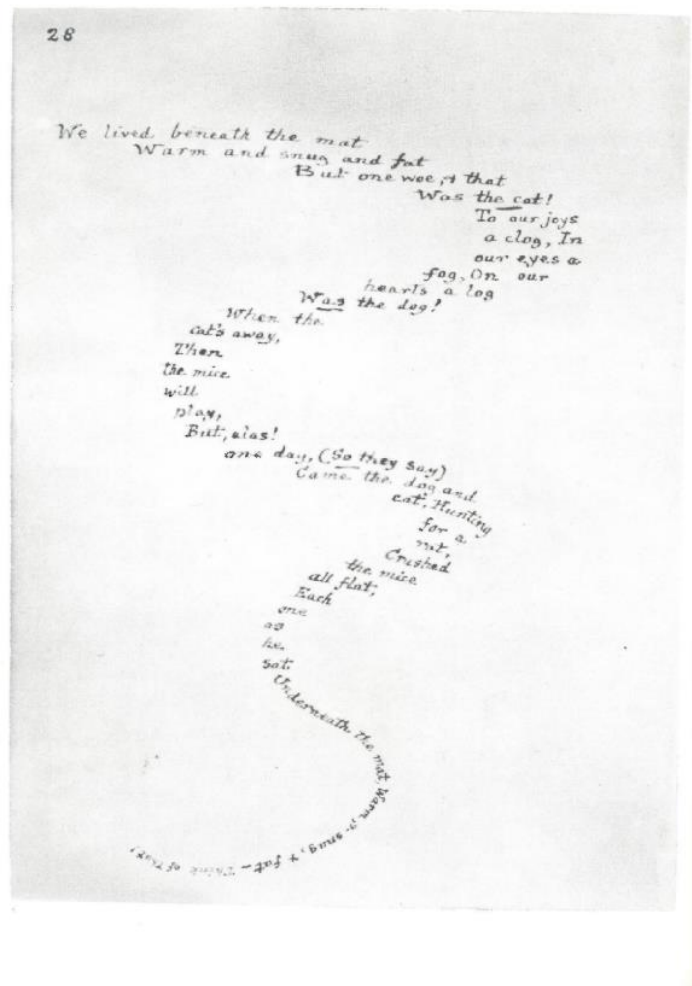 28
We lived beneath the mat
Warm and snug and fat
But one woe, & that
Was the cat!
To our joys
a clog, In
our eyes a
fog, On our
hearts a log
Was the dog!
When the
cat's away,
Then
the mice
will
play,
But, alas!
one day, (So they say)
Came the dog and
cat, Hunting
for a
rat,
Crushed
the mice
all flat,
Each
one
as
he
sat.
Underneath the mat, Warm, & snug, & fat – Think of that!